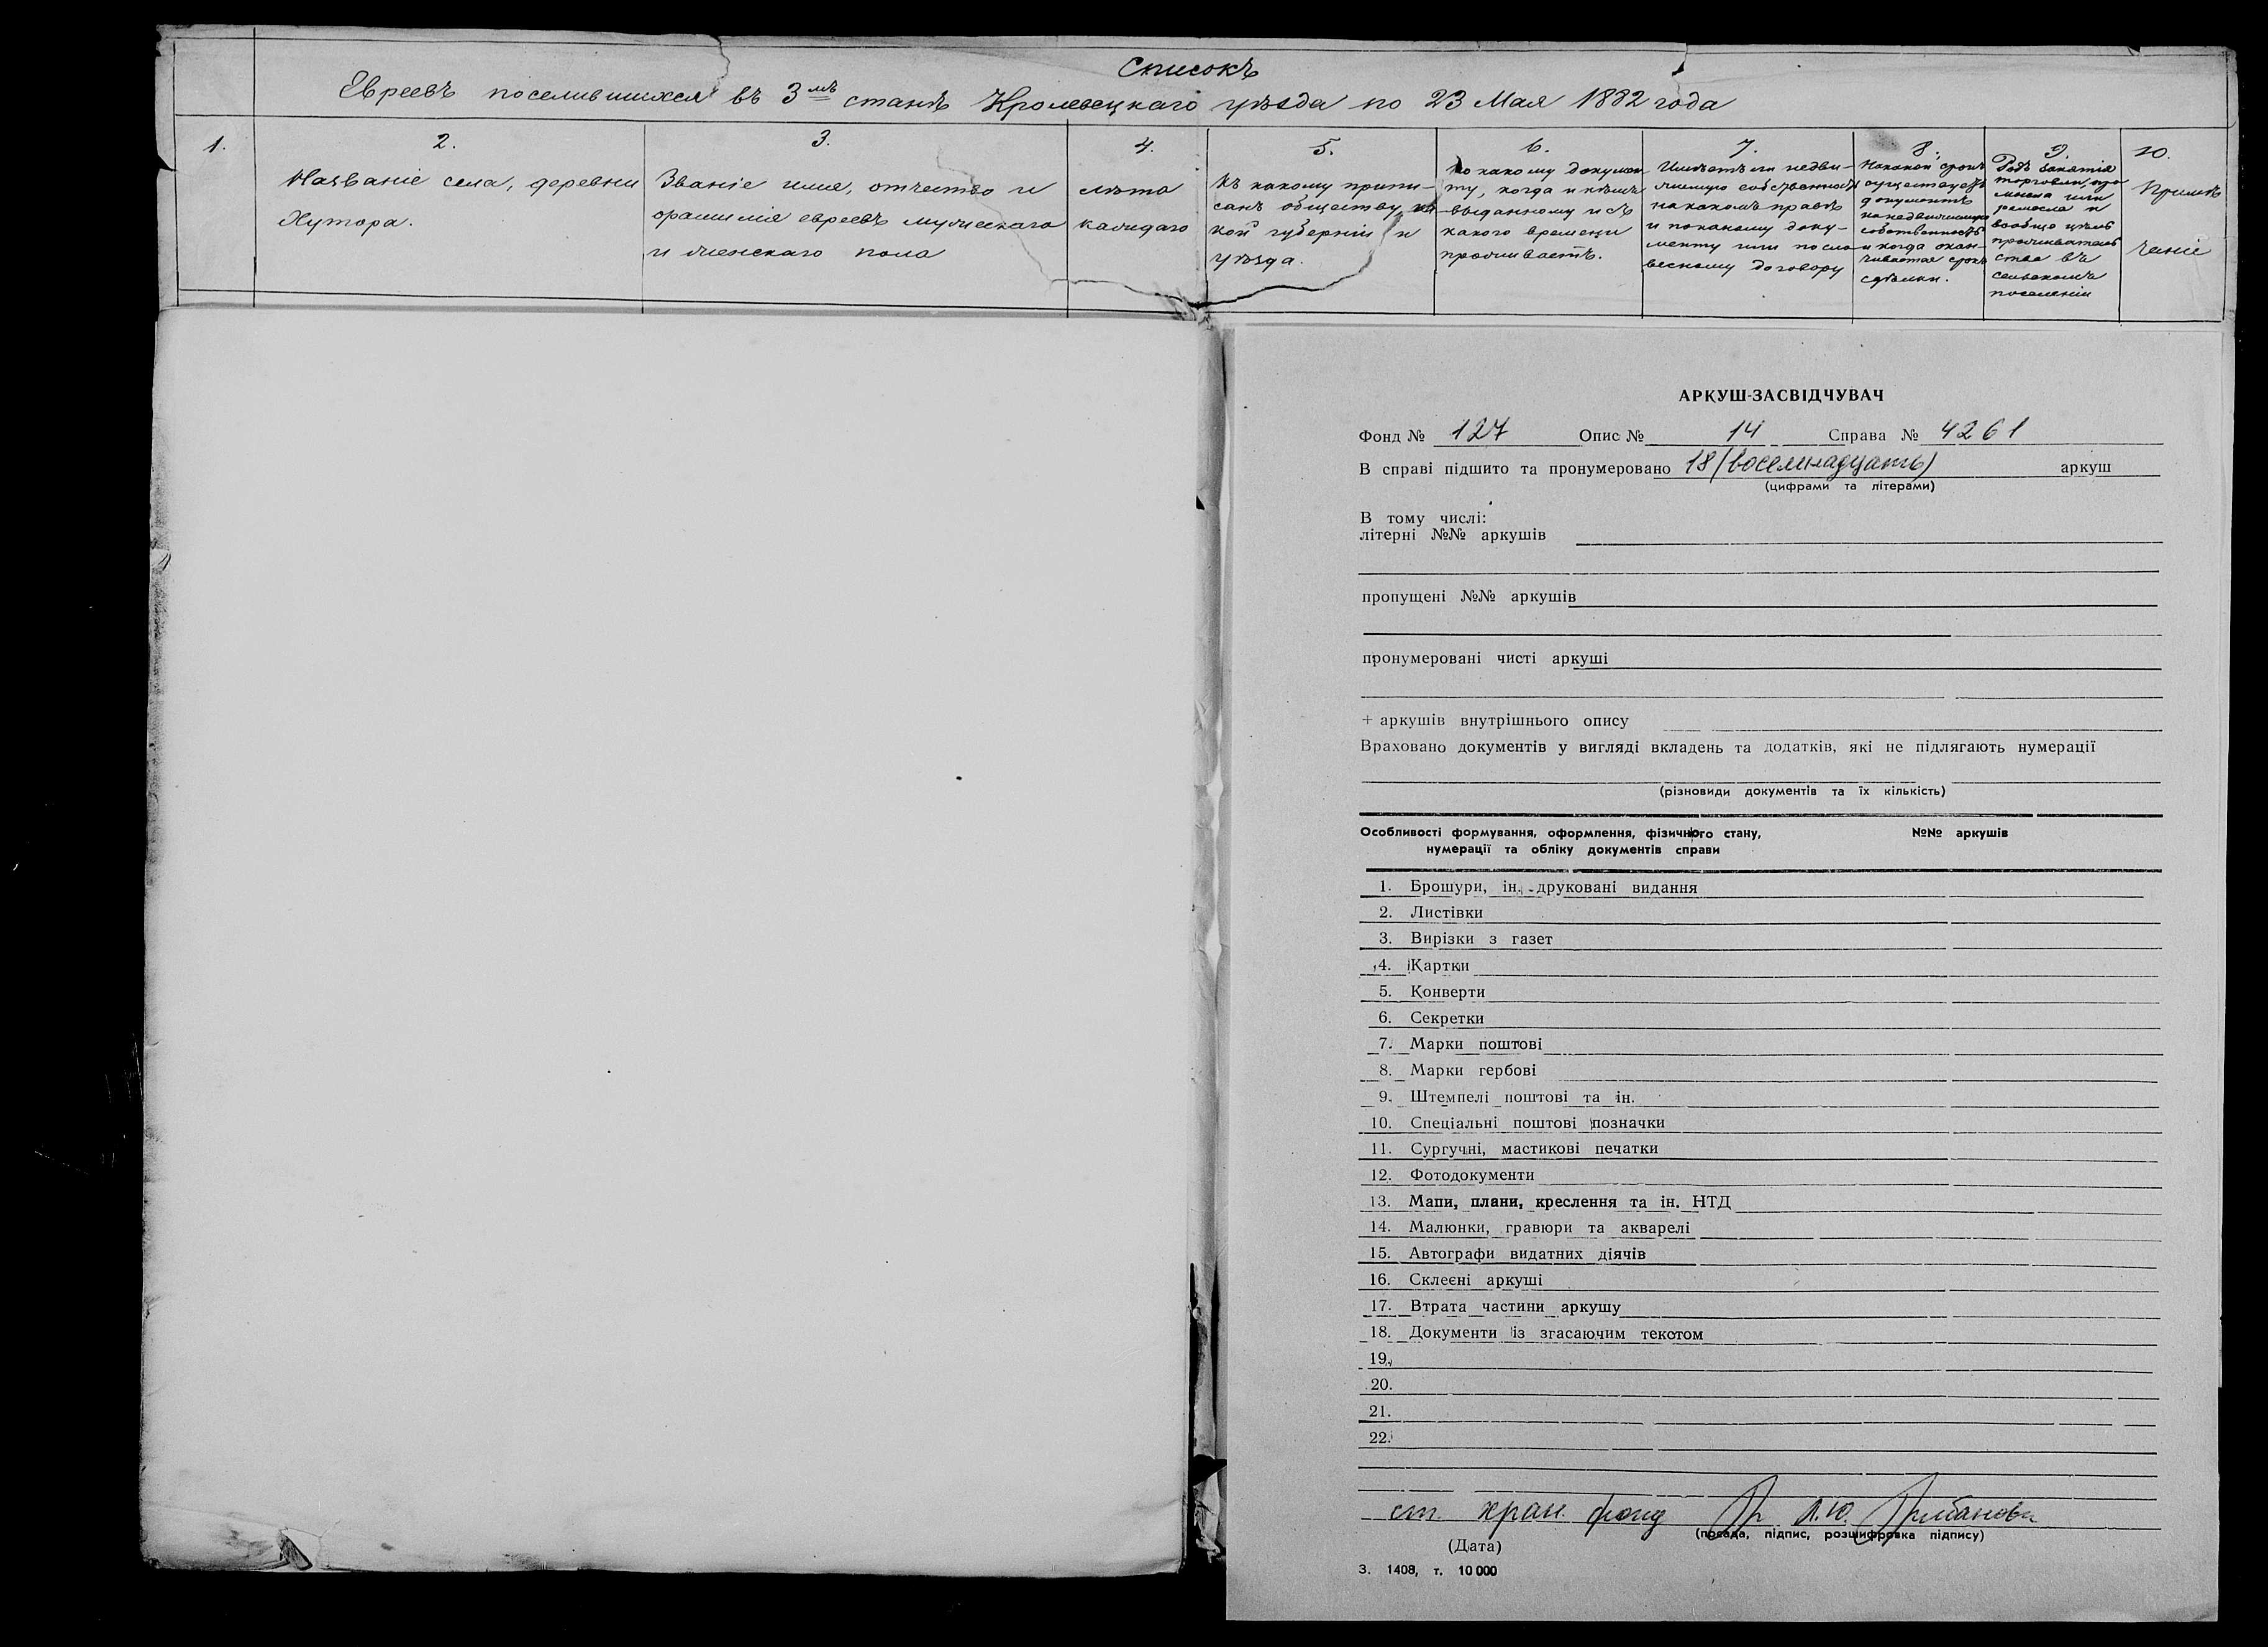 Списокъ
Евреевъ поселившихся въ 3мъ станѣ Кролевецкаго уѣзда по 23 Мая 1882 года
1.
2.
Названіе села, деревни
Хутора.
3.
Званіе имя, отчество и
фамилія евреевъ мужескаго
и женскаго пола
4.
лѣта
каждаго
5.
Къ какому припи-
санъ обществу, ка
кой губерніи и
уѣзда.
6.
По какому докумен
ту, когда и кѣмъ
выданному и съ
какого времени
проживаетъ.
7.
Имѣетъ ли недви-
жимую собственность
на какомъ правѣ
и по какому доку-
менту или по сло-
весному договору
8.
На какой срокъ
существуетъ
документъ
на недвижимую
собственность
и когда окан-
чивается срокъ
сдѣлки.
9.
Родъ занятія
торговли, про
мысла или
ремесла и
вообще цѣль
проживатель
ства въ
сельскомъ
поселеніи
10.
Примѣ
чаніе
АРКУШ-ЗАСВІДЧУВАЧ
Фонд № 127 Опис № 14 Справа № 4261
В справі підшито та пронумеровано 18 (восемнадцать) аркуш
(цифрами та літерами)
В тому числі:
літерні №№ аркушів
пропущені №№ аркушів
пронумеровані чисті аркуші
+ аркушів внутрішнього опису
Враховано документів у вигляді вкладень та додатків, які не підлягають нумерації
(різновиди документів та їх кількість)
Особливості формування, оформлення, фізичного стану, №№ аркушів
нумерації та обліку документів справи
1. Брошури, ін. друковані видання
2. Листівки
3. Вирізки з газет
4. Картки
5. Конверти
6. Секретки
7. Марки поштові
8. Марки гербові
9. Штемпелі поштові та ін.
10. Спеціальні поштові позначки
11. Сургучні, мастикові печатки
12. Фотодокументи
13. Мапи, плани, креслення та ін. НТД
14. Малюнки, гравюри та акварелі
15. Автографи видатних діячів
16. Склеєні аркуші
17. Втрата частини аркушу
18. Документи із згасаючим текстом
19.
20.
21.
22.
ст. хран. фонд
(посада, підпис, розшифровка підпису)
(Дата)
З. 1408, т. 10 000